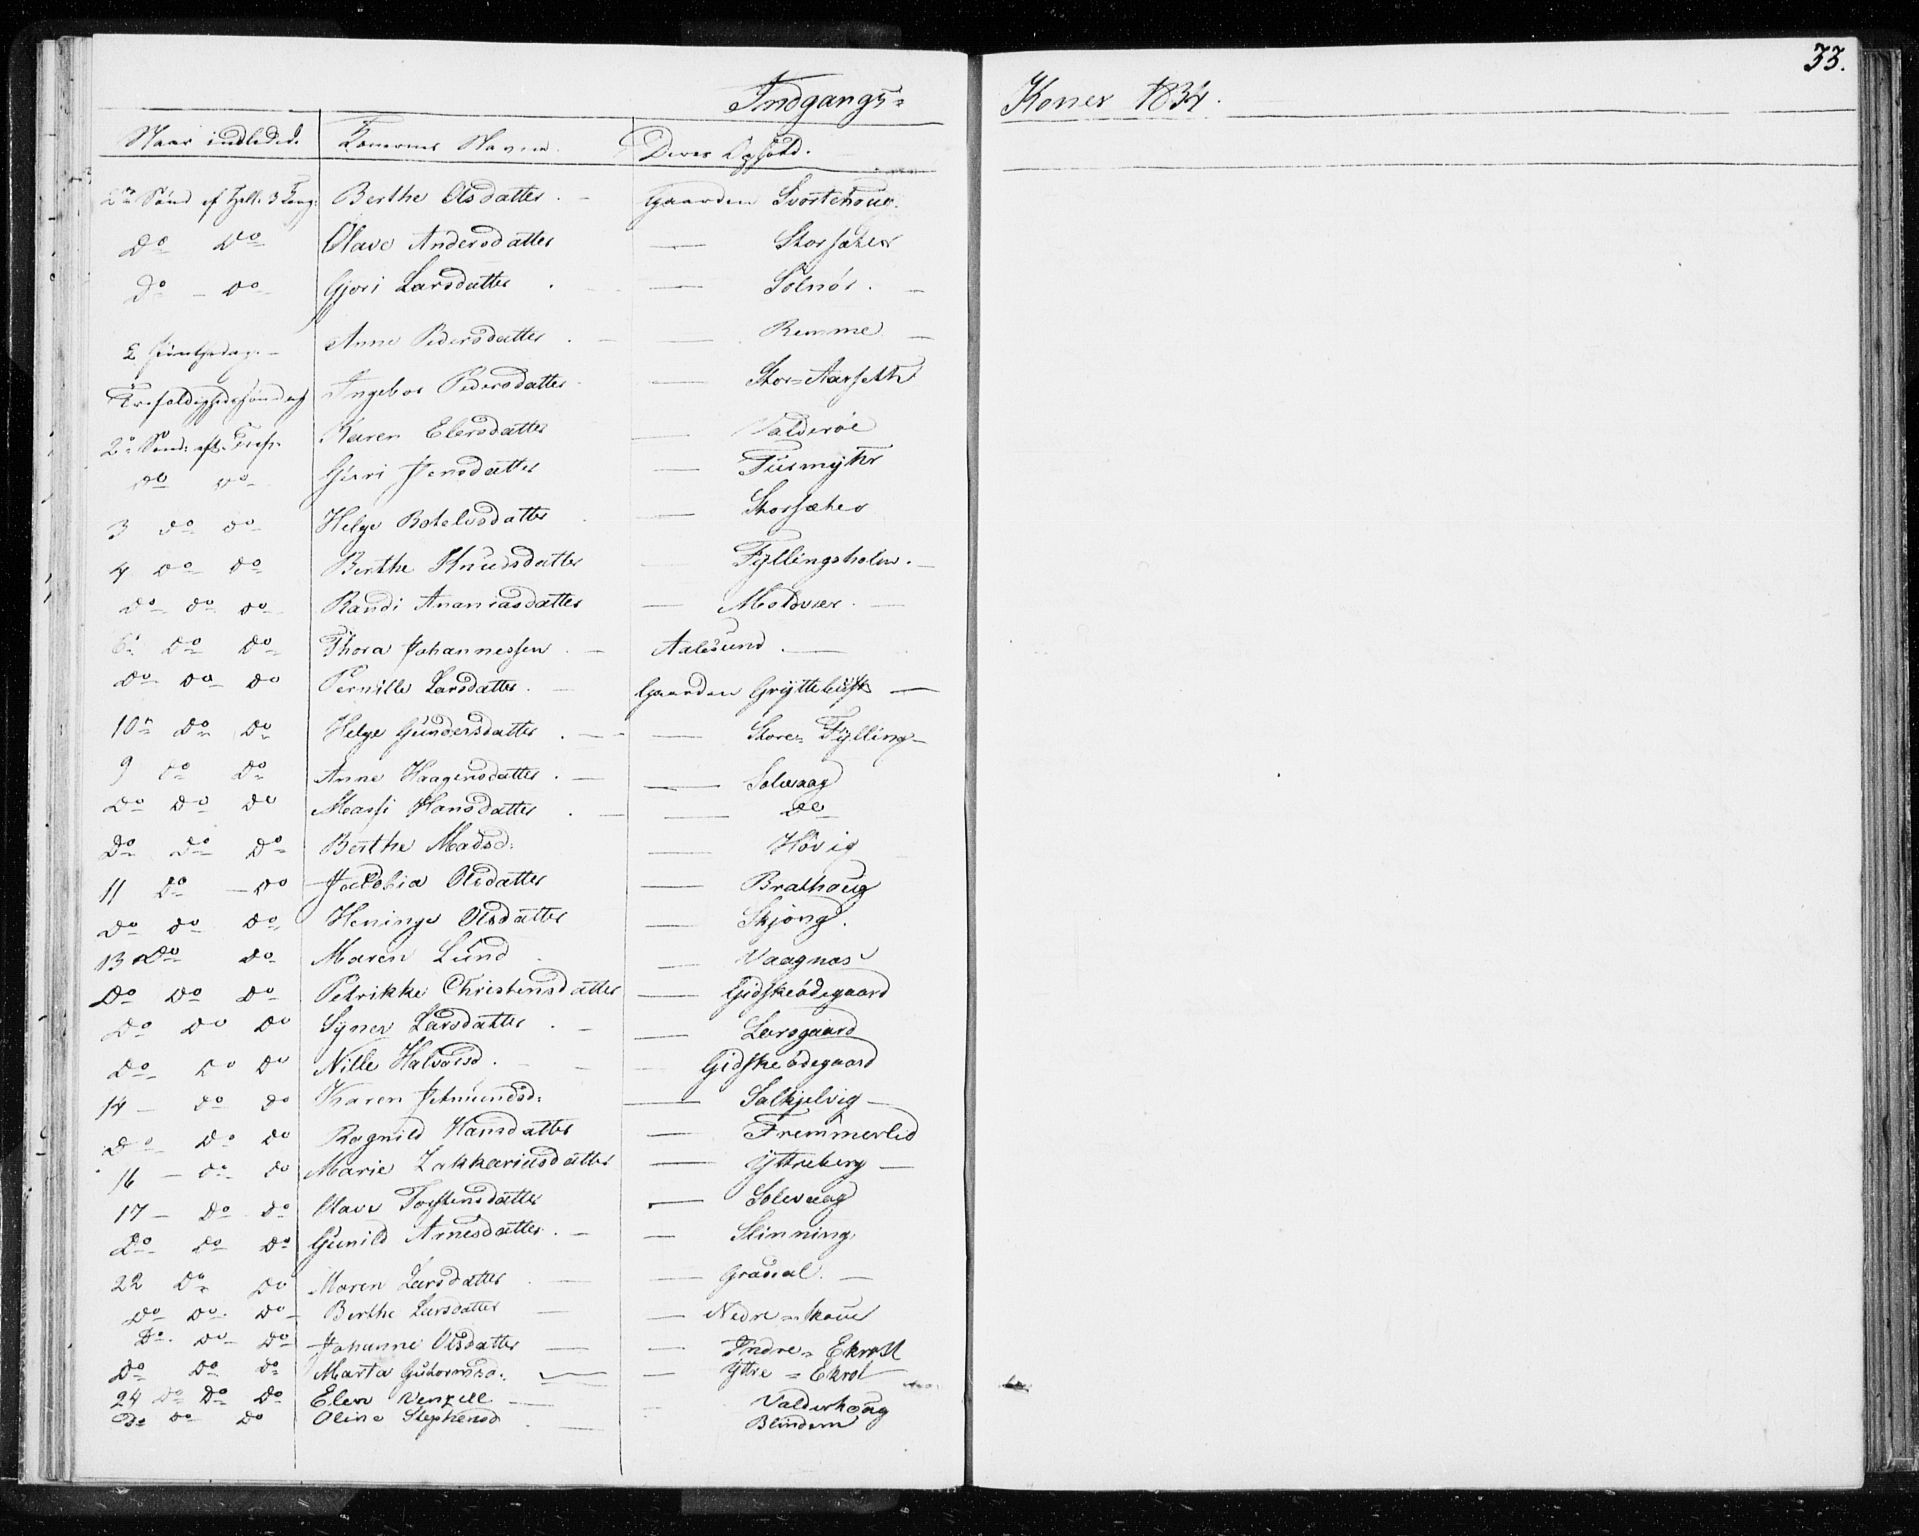 33.
Indgangs-Koner 1834.
Naar indledede Konernes Navne Deres Ophold.
2den Sønd ef Hell. 3 Kong: Berthe Olsdatter Gaarden Svortehoug.
Do Do Olave Andersdatter — Storsæter
Do - Do Gjøri Larsdatter — Solnør.
2 Pintsedag. Anne Pedersdatter — Remme
Trefoldighedssøndag Ingebor Pedersdatter — Stor=Aarseth
2n Sønd: eft. Tref. Karen Elersdatter — Valderøe
Do Do Giøri Jensdatter — Tusmyhr
3 do do Helge Botelvsdatter — Storsæter
4 do do Berthe Knudsdatter Fyllingsholm.
do do do Randi Ananiasdatter — Moldvær.
6 do do Thora Johannessen Aalesund
do do do Pernille Larsdatter. Gaarden Gryttehust
10n do do Helge Gundersdatter — Store= Fylling
9 do do Anne Haagensdatter — Solevaag
Do Do Do Massi Hansdatter — do
Do Do Do Berthe Madsd: — Høvig
11 Do - Do Jacobia Olsdatter — Brathoug
Do Do Do Heninge Olsdatter — Skjong.
13 Do Do Maren Lund — Vaagnæs
Do Do Do Petrikke Christensdatter — Gidskeødegaard
Do Do Do Syner Larsdatter — Larsgaard
Do Do Do Nille Halvorsd. — Gidskeødegaard
14 - do do Karen Jetmundsd: — Solkjelvig
Do Do Do Ragnild Hansdatter — Fremmerlid
16 - do do Marie Zakkariusdatter — Yttreberg
17 - Do do Olave Torstensdatter — Solevaag
Do Do Do Gunild Arnesdatter. — Slinning
22 Do Do Maren Larsdatter — Gradsal.
Do Do Do Berthe Larsdatter — Nedre=Skoue
Do. Do Do Johanne Olsdatter — Indre= Ekrost
Do Do Do Marta Guttormsd. — Yttre = Ekrost
24 Do Do Do Elen Venzell Valderhoug
Do Do Do Oline Stephensd Blindem